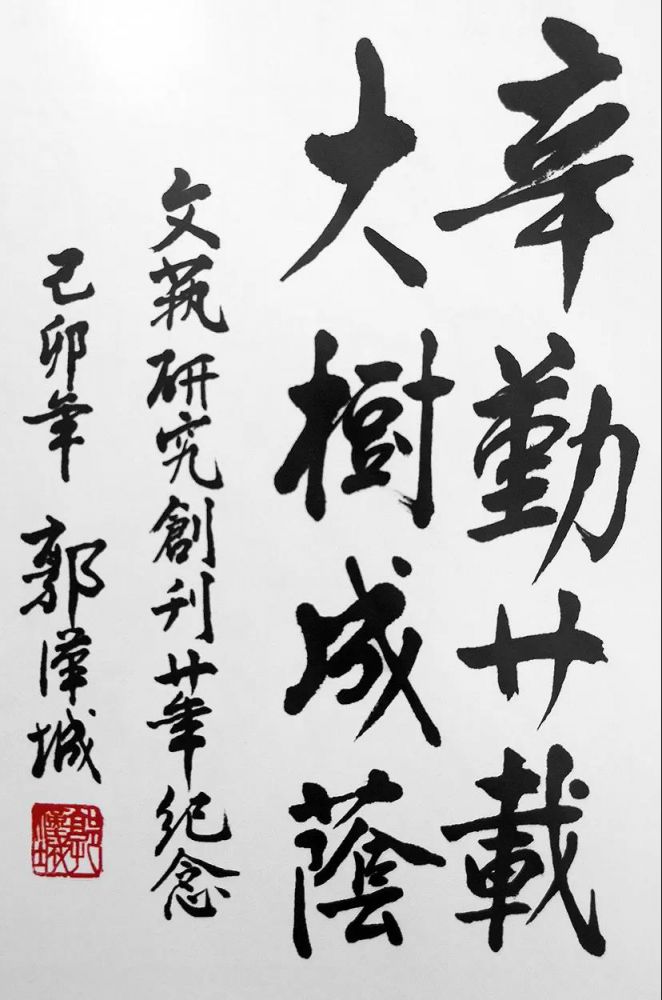 辛勤廿載
大樹成蔭
文蓺研究創刊廿年紀念
己卯年 郭漢城
郭漢城